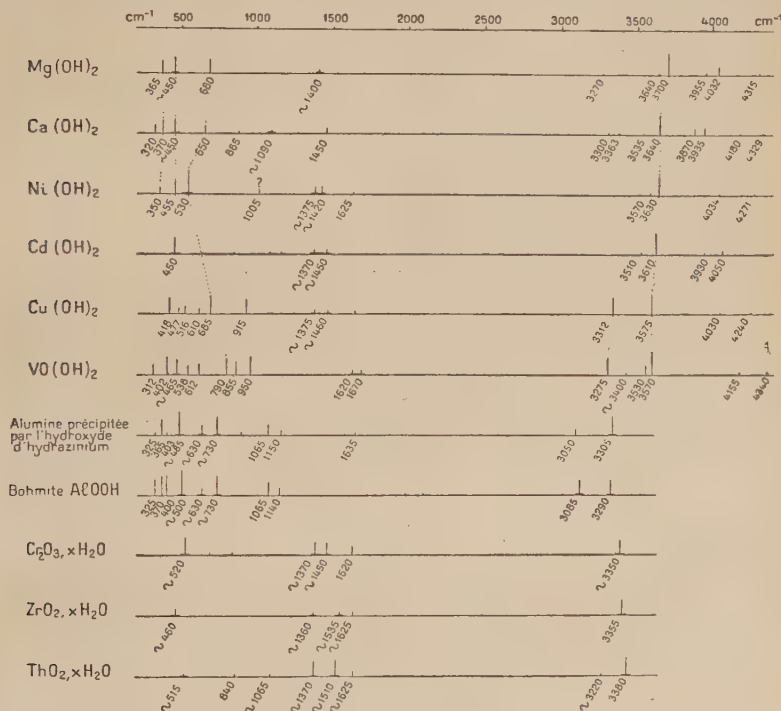 cm⁻¹ 500 1000 1500 cm⁻¹ 2000 2500 3000 3500 cm⁻¹ 4000
Mg(OH)2
365 ~450 680 ~1400 3270 3640 3700 3955 4032 4315
Ca(OH)2
320 370 ~450 650 865 ~1090 1450 3300 3363 3535 3640 3870 3935 4180 4329
Ni(OH)2
?
350 455 530 1005 ~1375 ~1420 1625 3570 3630 4034 4271
Cd(OH)2
450 ~1370 ~1450 3510 3610 3930 4050
Cu(OH)2
418 477 516 610 685 915 ~1375 ~1460 3312 3575 4030 4240
VO(OH)2
312 402 ~465 538 612 790 855 950 1620 1670 3275 ~3400 3530 3570 4155 4340
Alumine précipitée
par l'hydroxyde
d'hydrazinium
325 365 403 ~485 ~630 ~730 1065 1150 1635 3050 3305
Bohmite AlOOH
325 370 400 ~500 ~630 ~730 1065 1140 3085 3290
Cr2O3, xH2O
~520 ~1370 ~1450 1620 ~3350
ZrO2, xH2O
~460 ~1360 ~1535 ~1625 3355
ThO2, xH2O
~515 840 ~1065 ~1370 ~1510 ~1625 ~3220 3380